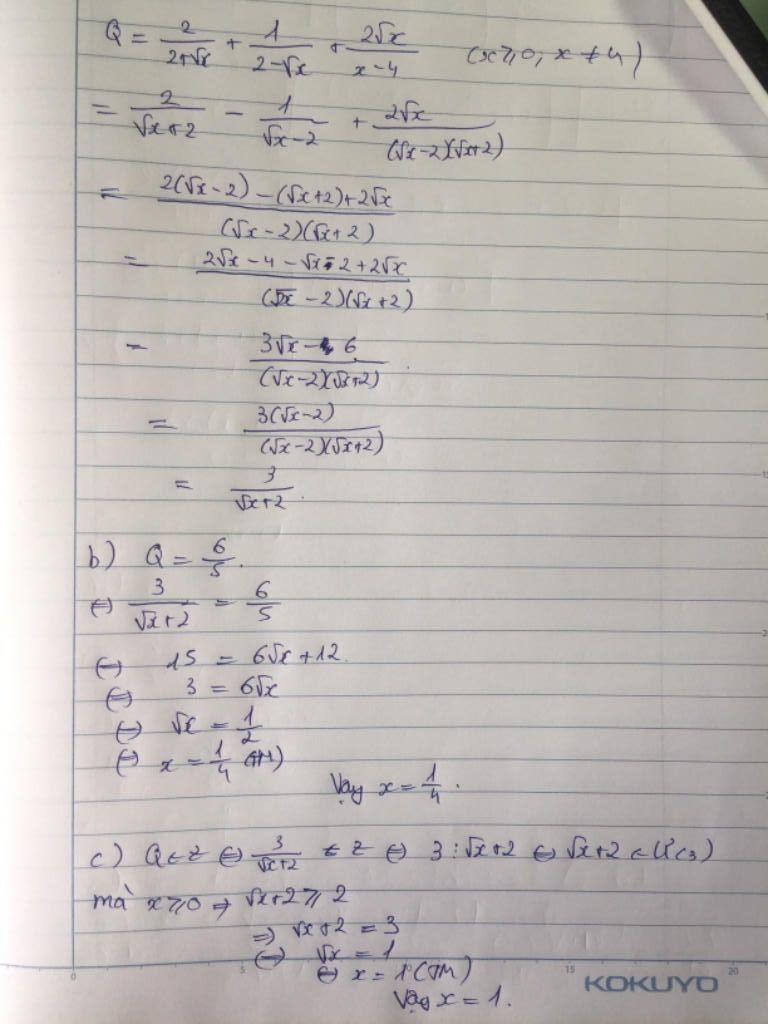 Q = 2/(2+√x) + 1/(2-√x) + 2√x/(x-4) (x ⩾ 0, x ≠ 4)
= 2/(√x+2) - 1/(√x-2) + 2√x/((√x-2)(√x+2))
= (2(√x-2) - (√x+2) + 2√x)/((√x-2)(√x+2))
= (2√x - 4 - √x - 2 + 2√x)/((√x-2)(√x+2))
= (3√x - 6)/((√x-2)(√x+2))
= 3(√x-2)/((√x-2)(√x+2))
= 3/(√x+2).
b) Q = 6/5.
⇔ 3/(√x+2) = 6/5
⇔ 15 = 6√x + 12.
⇔ 3 = 6√x
⇔ √x = 1/2
⇔ x = 1/4 (TM)
Vậy x = 1/4.
c) Q ∈ Z ⇔ 3/(√x+2) ∈ Z ⇔ 3 ⋮ √x+2 ⇔ √x+2 ∈ Ư(3)
mà x ⩾ 0 ⇒ √x+2 ⩾ 2
⇒ √x+2 = 3
⇔ √x = 1
⇔ x = 1 (TM)
Vậy x = 1.
0 5 15 20
KOKUYO